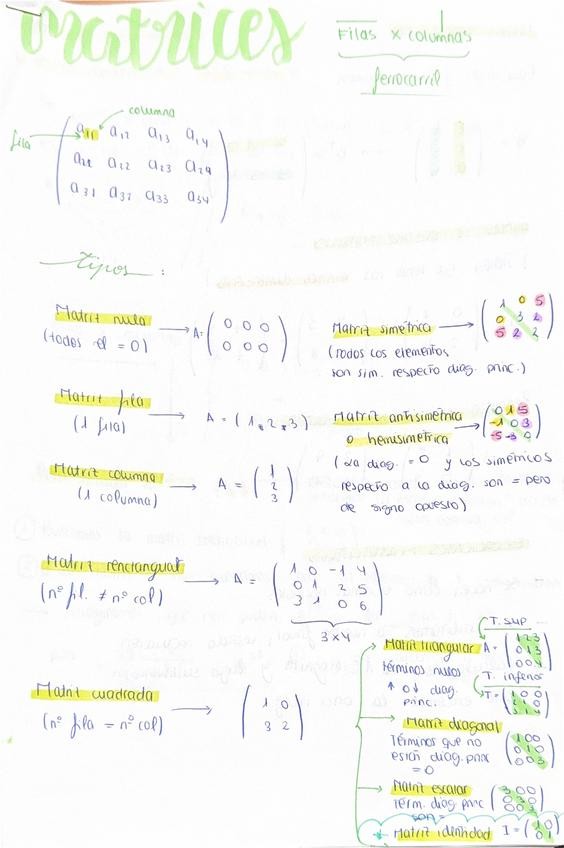 matrices
Filas x columnas
ferrocarril
columna
fila
a11 a12 a13 a14
a21 a22 a23 a24
a31 a32 a33 a34
tipos :
Matriz nula
(todos el = 0)
A=
0 0 0
0 0 0
Matriz simétrica
(todos los elementos
son sim. respecto diag. princ.)
1 0 5
0 3 2
5 2 2
Matriz fila
(1 fila)
A = ( 1 2 3 )
Matriz antisimétrica
o hemisimétrica
(La diag. = 0 y los simétricos
respecto a la diag. son = pero
de signo opuesto)
0 1 5
-1 0 3
-5 -3 0
Matriz columna
(1 columna)
A =
1
2
3
Matriz renctangular
(nº fil. ≠ nº col)
A =
1 0 -1 4
0 1 2 5
3 1 0 6
3x4
Matriz cuadrada
(nº fila = nº col)
1 0
3 2
Matriz triangular
términos nulos
↑ o ↓ diag.
princ.
T. sup
A =
1 2 3
0 1 3
0 0 4
T. inferior
T =
1 0 0
2 4 0
3 1 4
Matriz diagonal
Términos que no
están diag. princ
= 0
1 0 0
0 1 0
0 0 3
Matriz escalar
Térm. diag. princ
son =
3 0 0
0 3 0
0 0 3
Matriz identidad I =
1 0
0 1